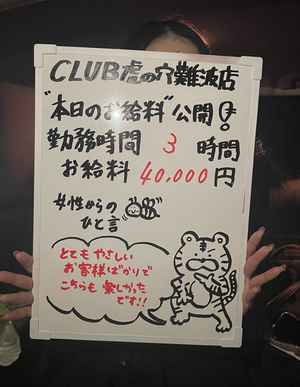 CLUB虎の穴難波店
"本日のお給料"公開!
勤務時間 3 時間
お給料 40,000円
女性からの
ひと言
とてもやさしい
お客様ばかりで
こちらも楽しかった
です!!